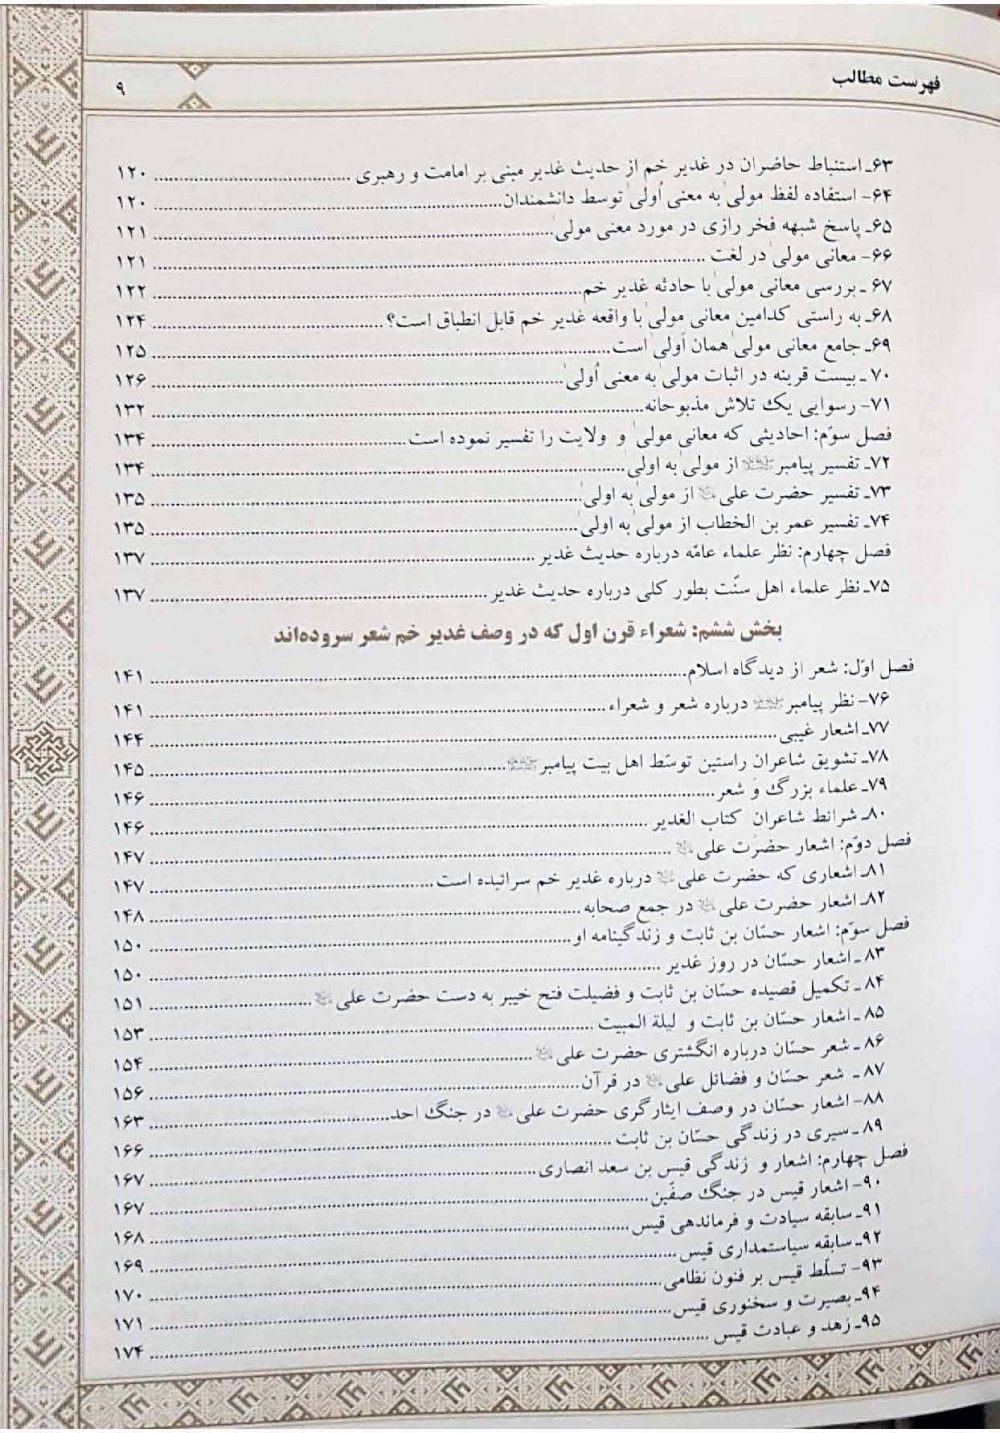 فهرست مطالب ۹
۶۳ـ استنباط حاضران در غدیر خم از حدیث غدیر مبنی بر امامت و رهبری ........ ۱۲۰
۶۴- استفاده لفظ مولیٰ به معنی أولیٰ توسط دانشمندان ........ ۱۲۰
۶۵ـ پاسخ شبهه فخر رازی در مورد معنی مولیٰ ........ ۱۲۱
۶۶- معانی مولیٰ در لغت ........ ۱۲۱
۶۷ ـ بررسی معانی مولیٰ با حادثه غدیر خم ........ ۱۲۲
۶۸ـ به راستی کدامین معانی مولیٰ با واقعه غدیر خم قابل انطباق است؟ ........ ۱۲۴
۶۹ـ جامع معانی مولیٰ همان اَولیٰ است ........ ۱۲۵
۷۰ ـ بیست قرینه در اثبات مولیٰ به معنی أولیٰ ........ ۱۲۶
۷۱- رسوایی یک تلاش مذبوحانه ........ ۱۳۲
فصل سوّم: احادیثی که معانی مولیٰ و ولایت را تفسیر نموده است ........ ۱۳۴
۷۲ـ تفسیر پیامبرﷺ از مولیٰ به اولیٰ ........ ۱۳۴
۷۳ـ تفسیر حضرت علی از مولیٰ به اولیٰ ........ ۱۳۵
۷۴ـ تفسیر عمر بن الخطاب از مولیٰ به اولی ........ ۱۳۵
فصل چهارم: نظر علماء عامّه درباره حدیث غدیر ........ ۱۳۷
۷۵ـ نظر علماء اهل سنّت بطور کلی درباره حدیث غدیر ........ ۱۳۷
بخش ششم: شعراء قرن اول که در وصف غدیر خم شعر سروده‌اند
فصل اوّل: شعر از دیدگاه اسلام ........ ۱۴۱
۷۶- نظر پیامبرﷺ درباره شعر و شعراء ........ ۱۴۱
۷۷ـ اشعار غیبی ........ ۱۴۴
۷۸ـ تشویق شاعران راستین توسّط اهل بیت پیامبرﷺ ........ ۱۴۵
۷۹ـ علماء بزرگ و شعر ........ ۱۴۶
۸۰ـ شرائط شاعران کتاب الغدیر ........ ۱۴۶
فصل دوّم: اشعار حضرت علی ........ ۱۴۷
۸۱ـ اشعاری که حضرت علی درباره غدیر خم سرائیده است ........ ۱۴۷
۸۲ـ اشعار حضرت علی در جمع صحابه ........ ۱۴۸
فصل سوّم: اشعار حسّان بن ثابت و زندگینامه او ........ ۱۵۰
۸۳ ـ اشعار حسّان در روز غدیر ........ ۱۵۰
۸۴ ـ تکمیل قصیده حسّان بن ثابت و فضیلت فتح خیبر به دست حضرت علی ........ ۱۵۱
۸۵ ـ اشعار حسّان بن ثابت و لیلة المبیت ........ ۱۵۳
۸۶ ـ شعر حسّان درباره انگشتری حضرت علی ........ ۱۵۴
۸۷ ـ شعر حسّان و فضائل علی در قرآن ........ ۱۵۶
۸۸- اشعار حسّان در وصف ایثارگری حضرت علی در جنگ احد ........ ۱۶۳
۸۹ ـ سیری در زندگی حسّان بن ثابت ........ ۱۶۶
فصل چهارم: اشعار و زندگی قیس بن سعد انصاری ........ ۱۶۷
۹۰- اشعار قیس در جنگ صفّین ........ ۱۶۷
۹۱ـ سابقه سیادت و فرماندهی قیس ........ ۱۶۸
۹۲ـ سابقه سیاستمداری قیس ........ ۱۶۹
۹۳- تسلّط قیس بر فنون نظامی ........ ۱۷۰
۹۴ـ بصیرت و سخنوری قیس ........ ۱۷۱
۹۵ـ زهد و عبادت قیس ........ ۱۷۴